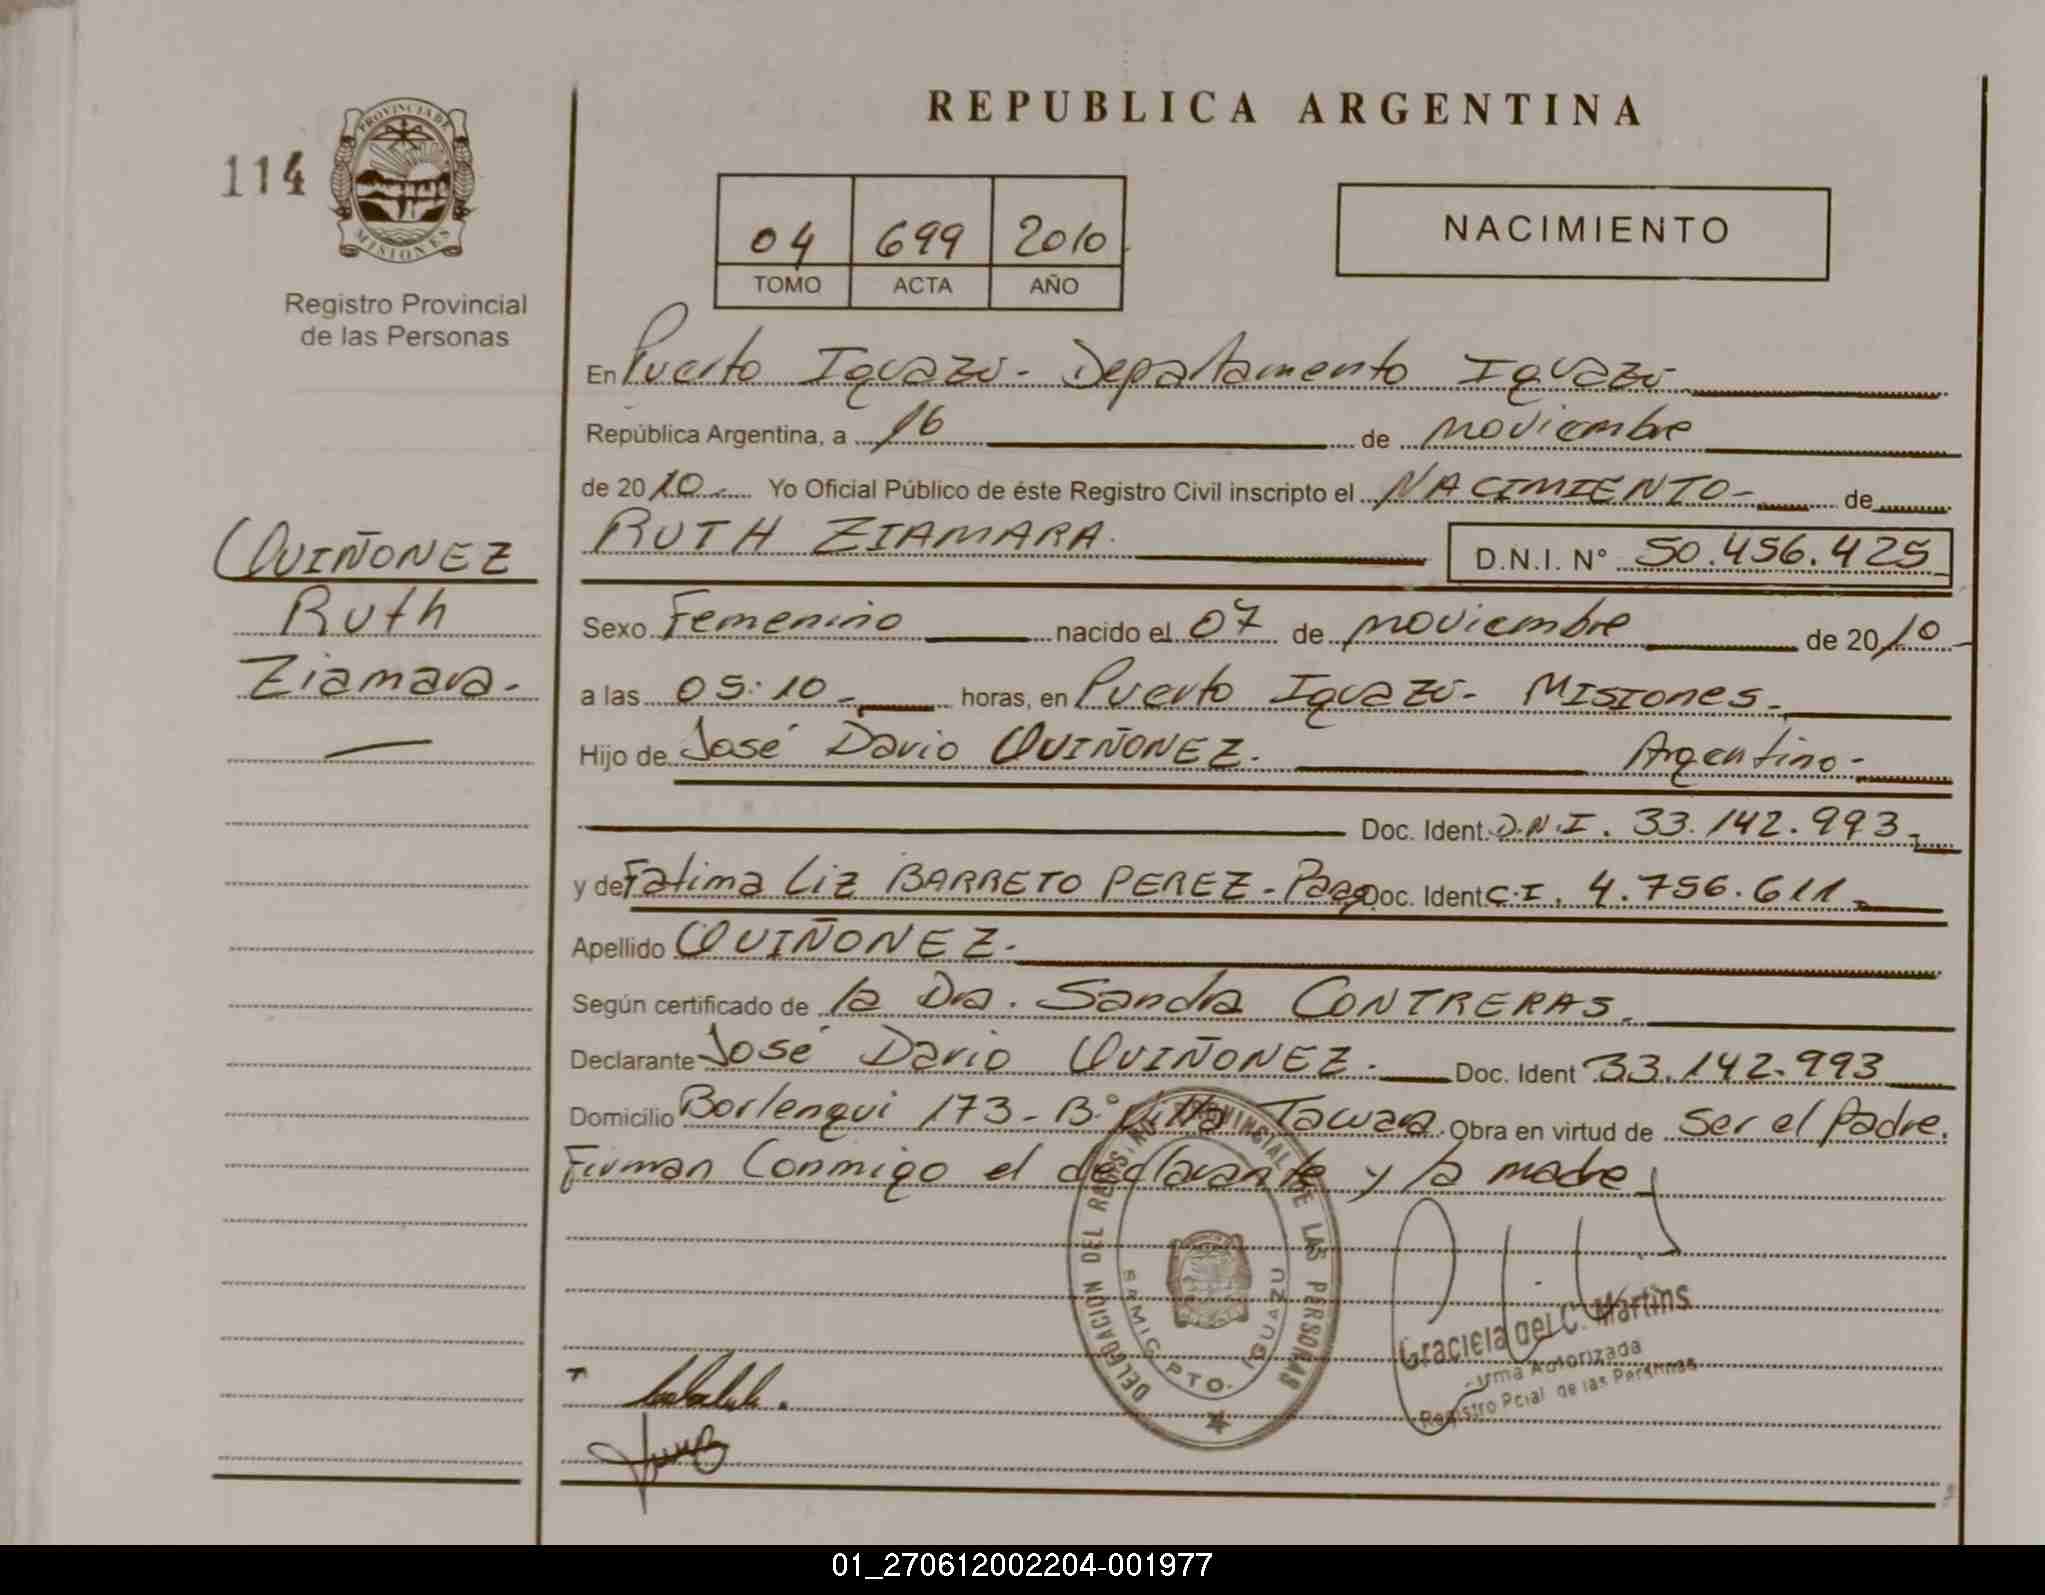 REPUBLICA ARGENTINA
114
PROVINCIA DE MISIONES
Registro Provincial
de las Personas
04 699 2010
TOMO ACTA AÑO
NACIMIENTO
En Puerto Iguazú - Departamento Iguazú
República Argentina, a 16 de noviembre
de 2010 Yo Oficial Público de éste Registro Civil inscripto el NACIMIENTO - de
RUTH ZIAMARA. D.N.I. N° 50.456.425
QUIÑONEZ
Ruth
Ziamara.-
Sexo Femenino nacido el 07 de noviembre de 2010
a las 05:10 horas, en Puerto Iguazú - Misiones.
Hijo de José Dario QUIÑONEZ. Argentino -
Doc. Ident. D.N.I. 33.142.993
y de Fatima Liz BARRETO PEREZ - Parag Doc. Ident C.I. 4.756.611
Apellido QUIÑONEZ.
Según certificado de la Dra. Sandra CONTRERAS.
Declarante José Dario QUIÑONEZ. Doc. Ident 33.142.993
Domicilio 173 - B° Villa Obra en virtud de ser el Padre.
Firman Conmigo el declarante y la madre
DELEGACION DEL REGISTRO PROVINCIAL DE LAS PERSONAS
DPTO. IGUAZU
Graciela del C. Martins
Firma Autorizada
Registro Pcial de las Personas
01_270612002204-001977